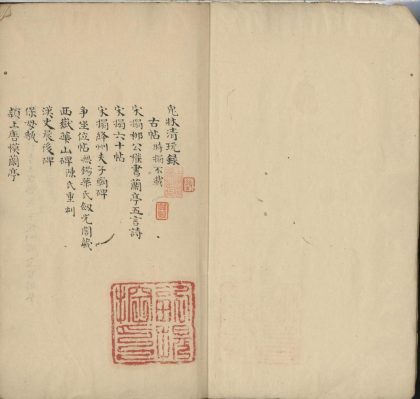 清玩錄
古帖 時搨不載
宋搨柳公權書蘭亭五言詩
宋搨六十帖
宋搨絳州夫子廟碑
爭坐位帖 無錫華氏劔光閣藏
西嶽華山碑 陳氏重刻
漢史晨後碑
保母甎
潁上唐模蘭亭